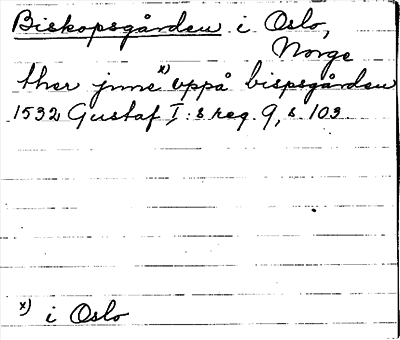 Biskopsgården i Oslo,
Norge
ther jnne x) vppå bispsgården
1532 Gustaf I:s reg. 9, s. 103.
x) i Oslo